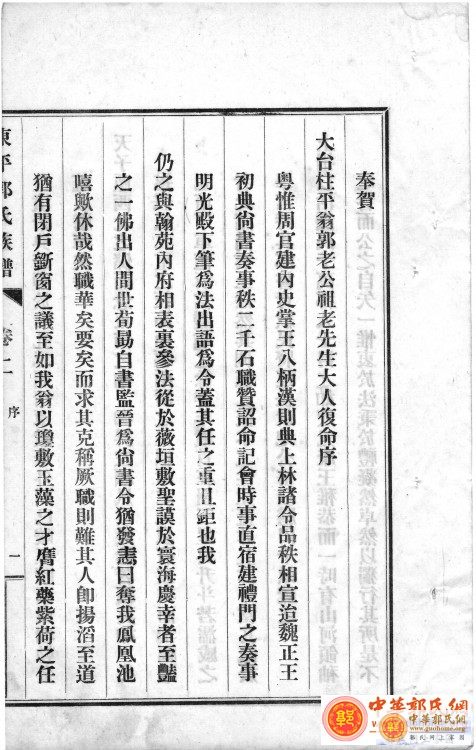 奉賀
大台柱平翁郭老公祖老先生大人復命序
粵惟周官建內史掌王八柄漢則典上林諸令品秩相宣迨魏正王
初典尚書奏事秩二千石職贊詔命記會時事直宿建禮門之奏事
明光殿下筆爲法出語爲令蓋其任之重且鉅也我
仍之與翰苑內府相表裏參法從於薇垣敷聖謨於寰海慶幸者至豔
之一佛出人間世荀勗自書監晉爲尚書令猶發恚曰奪我鳳凰池
嘻歟休哉然職華矣要矣而求其克稱厥職則難其人卽揚滔至道
猶有閉戶斵窗之議至如我翁以瓊敷玉藻之才膺紅藥紫荷之任
東平郭氏族譜
卷二
序
一
中華郭氏網
中華郭氏網
www.guohome.org
郭氏網上家園